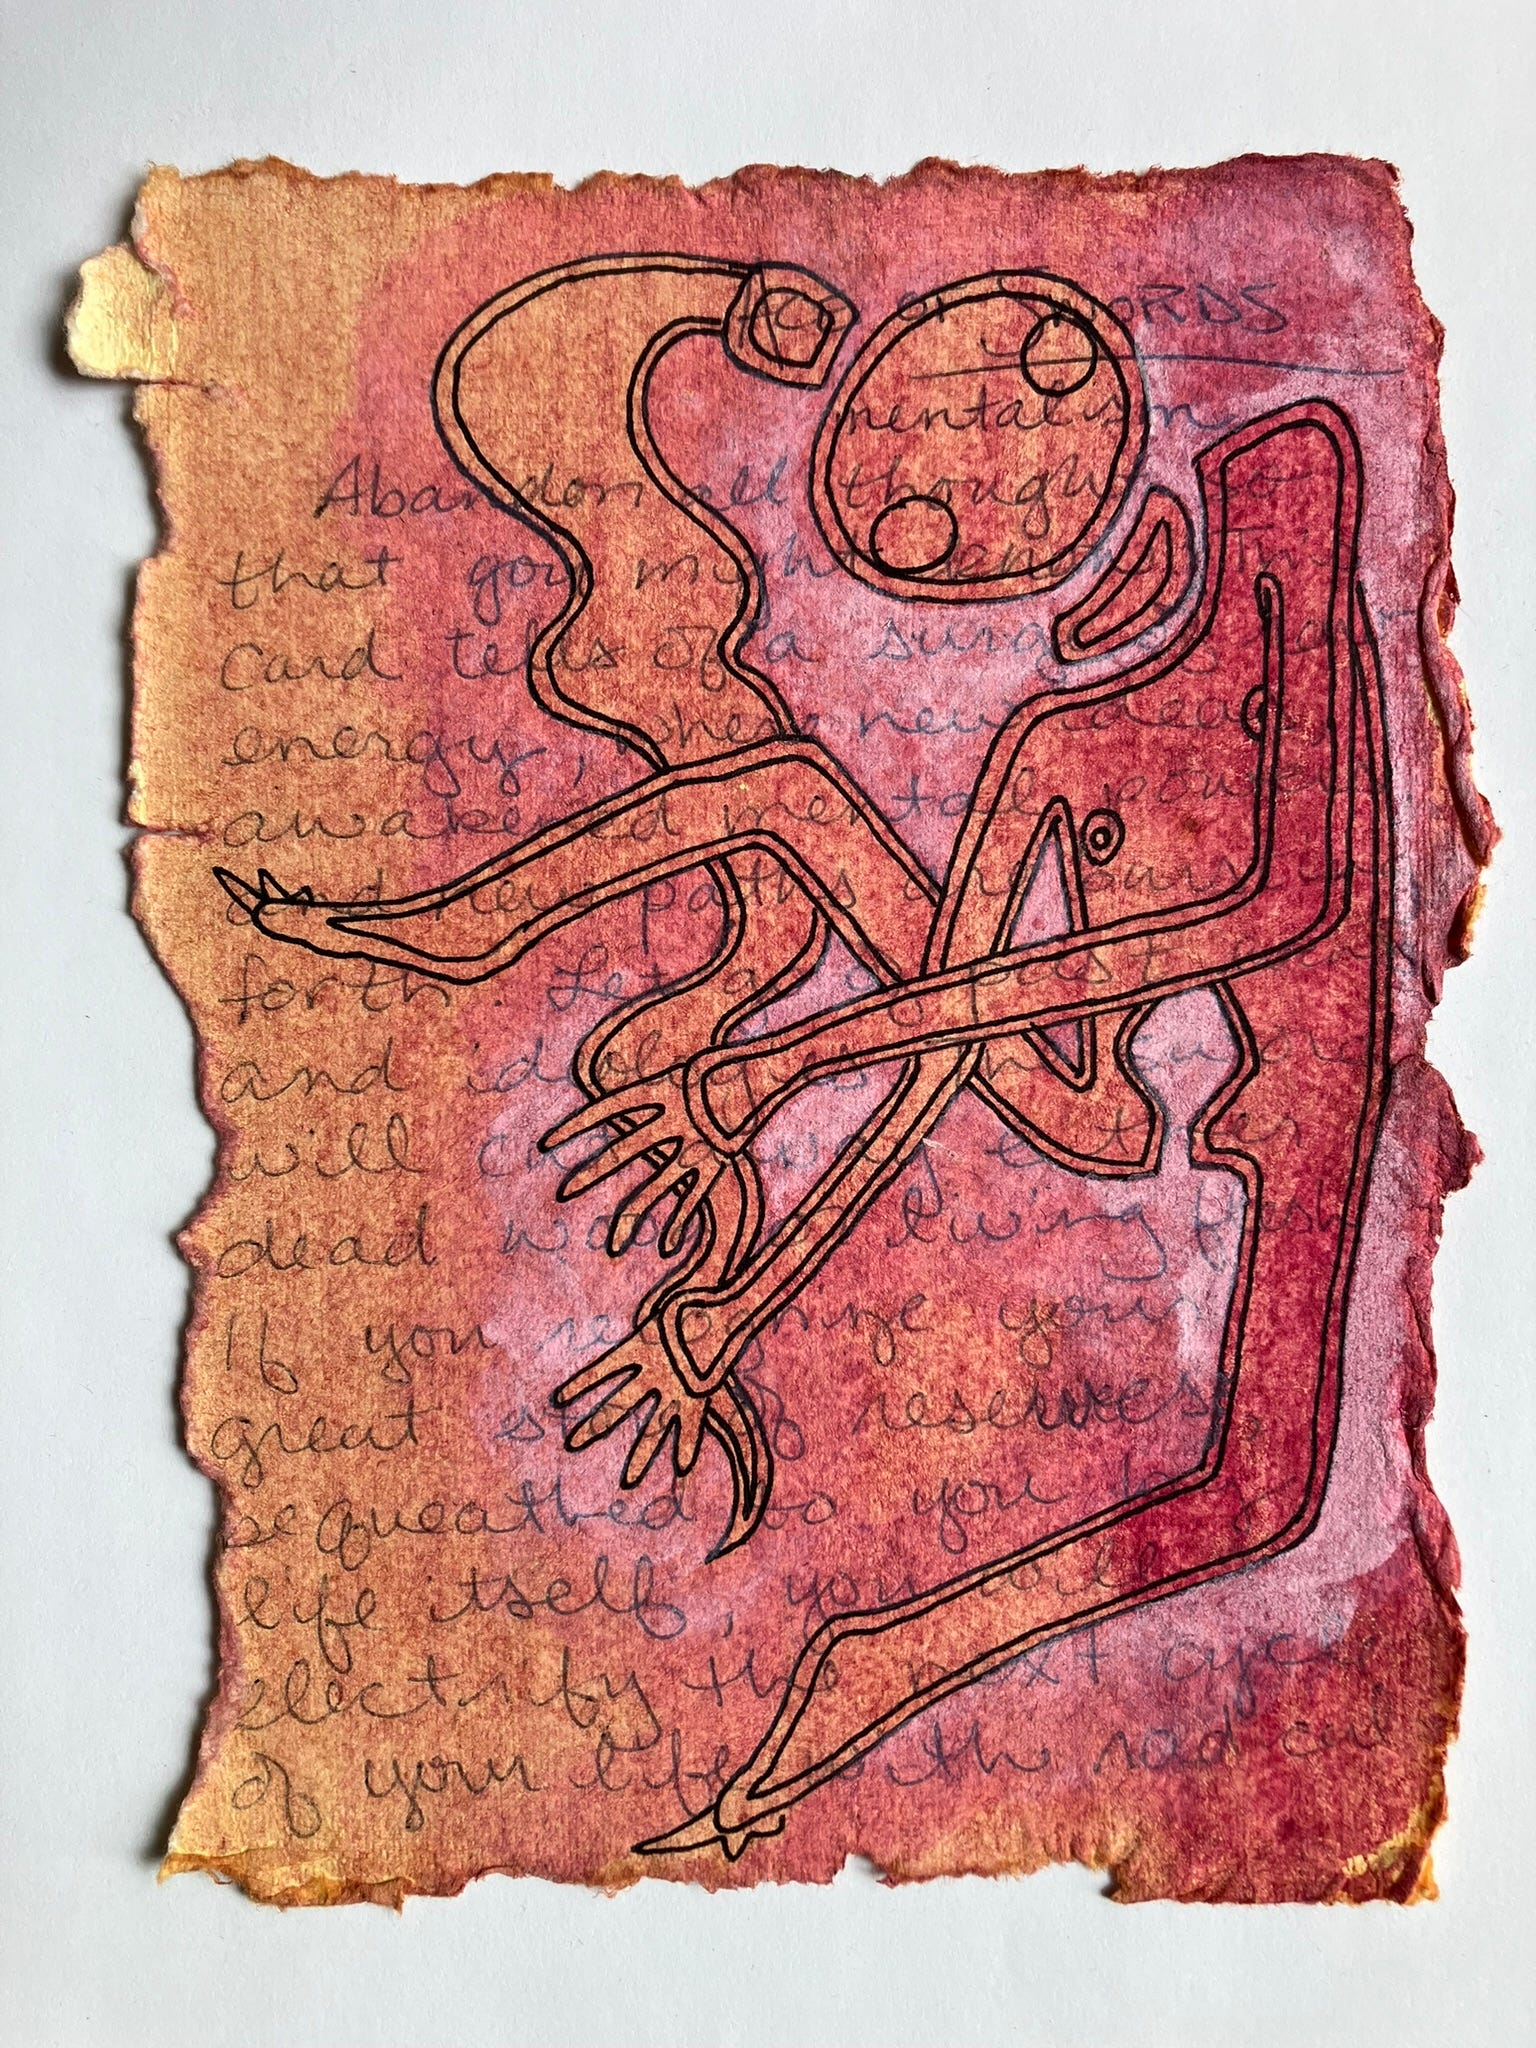 Ace of SWORDS
mentalism
Abandon all thought so
that you might know. This
card tells of a surging
energy, where new ideas
awakened mental power
and new paths are bursting
forth. Let go of past
and ideologies
will cut away
dead wood or living flesh
If you recognize your
great store of reserves,
bequeathed to you by
life itself, you will
electrify the next cycle
of your life with radical